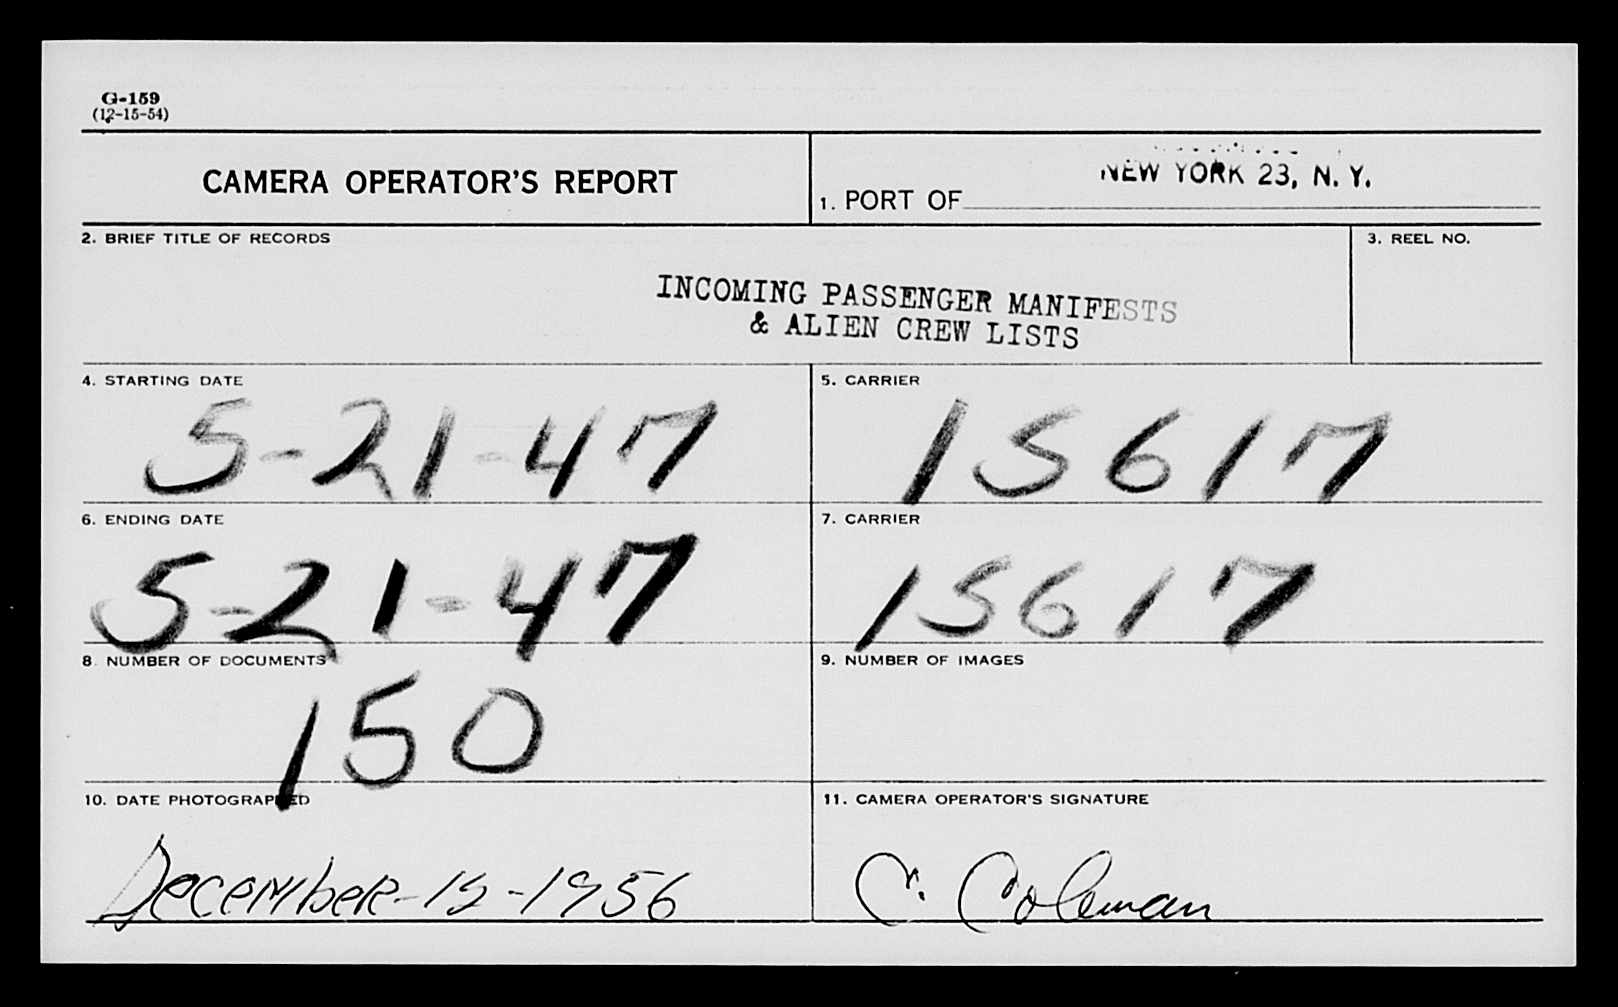 G-159
(12-15-54)
CAMERA OPERATOR'S REPORT
1. PORT OF NEW YORK 23, N. Y.
2. BRIEF TITLE OF RECORDS
3. REEL NO.
INCOMING PASSENGER MANIFESTS
& ALIEN CREW LISTS
4. STARTING DATE
5. CARRIER
5-21-47
15617
6. ENDING DATE
7. CARRIER
5-21-47
15617
8. NUMBER OF DOCUMENTS
9. NUMBER OF IMAGES
150
10. DATE PHOTOGRAPHED
11. CAMERA OPERATOR'S SIGNATURE
December - -1956
C. Coleman